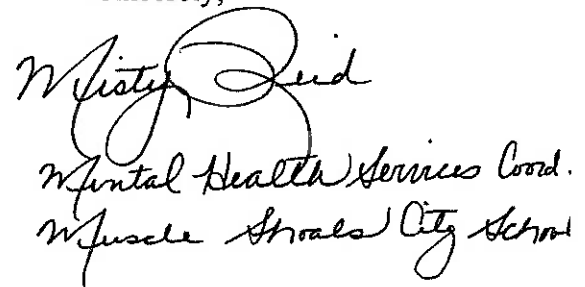 Misty Reid
Mental Health Services Coord.
Muscle Shoals City School